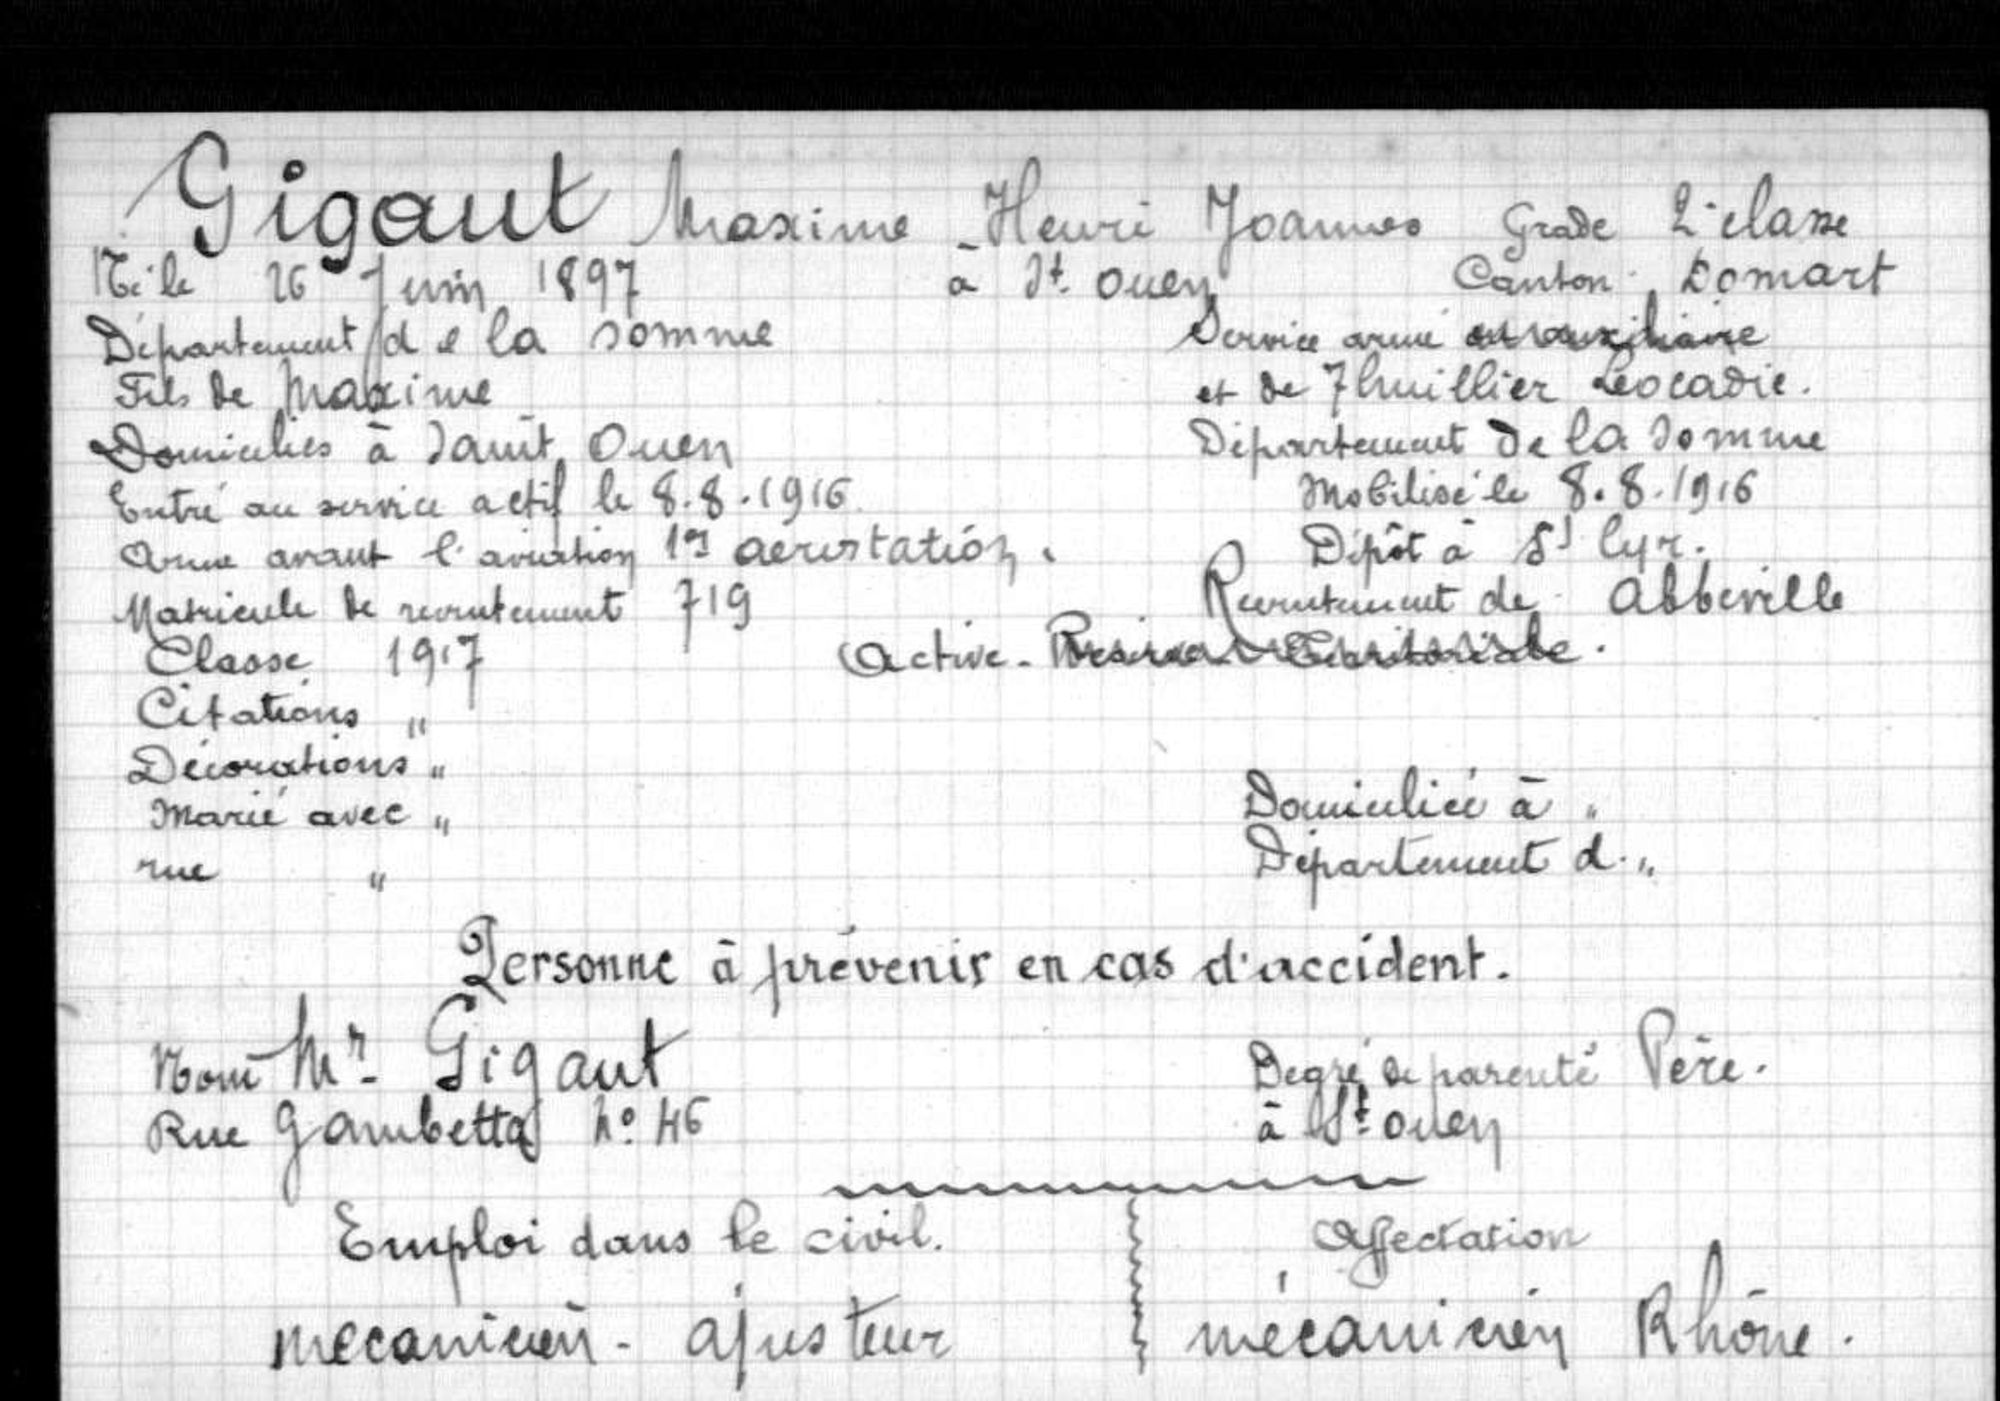 Gigaut Maxime - Henri Joannes Grade 2e classe
Né le 26 Juin 1897 à St. Ouen Canton Domart
Département de la Somme Service armé ou auxiliaire
Fils de Maxime et de Thuillier Léocadie.
Domiciliés à Saint Ouen Département de la Somme
Entré au service actif le 8.8.1916 Mobilisé le 8.8.1916
Arme avant l'aviation 1er aerostation. Dépôt à St Cyr.
Matricule de recrutement 719 Recrutement de Abbeville
Classe 1917 Active - Réserve - Territoriale.
Citations "
Décorations "
Marié avec " Domicilié à "
rue " Département d. "
Personne à prévenir en cas d'accident.
Nom Mr. Gigaut Degré de parenté Père.
Rue Gambetta No 46 à St. Ouen
Emploi dans le civil. Affectation
mécanicien - ajusteur mécanicien Rhône.